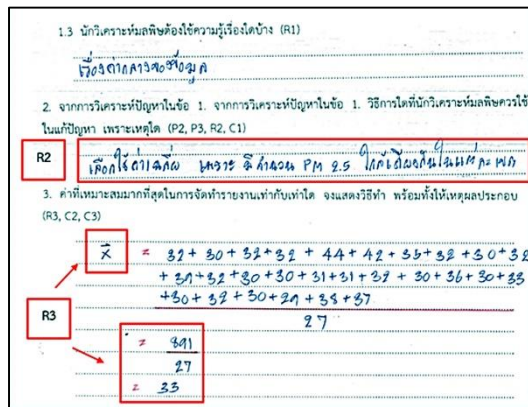 1.3 นักวิเคราะห์มลพิษต้องใช้ความรู้เรื่องใดบ้าง (R1)
เรื่องค่ากลางของข้อมูล
2. จากการวิเคราะห์ปัญหาในข้อ 1. จากการวิเคราะห์ปัญหาในข้อ 1. วิธีการใดที่นักวิเคราะห์มลพิษควรใช้
ในแก้ปัญหา เพราะเหตุใด (P2, P3, R2, C1)
R2
เลือกใช้ค่าเฉลี่ย เพราะ มีจำนวน PM 2.5 ใกล้เคียงกันในแต่ละเขต
3. ค่าที่เหมาะสมมากที่สุดในการจัดทำรายงานเท่ากับเท่าใด จงแสดงวิธีทำ พร้อมทั้งให้เหตุผลประกอบ
(R3, C2, C3)
x̄ = 32 + 30 + 32 + 32 + 44 + 42 + 35 + 32 + 30 + 32
+ 39 + 32 + 30 + 30 + 31 + 31 + 32 + 30 + 36 + 30 + 33
+ 30 + 32 + 30 + 29 + 38 + 37
27
R3
= 891
27
= 33